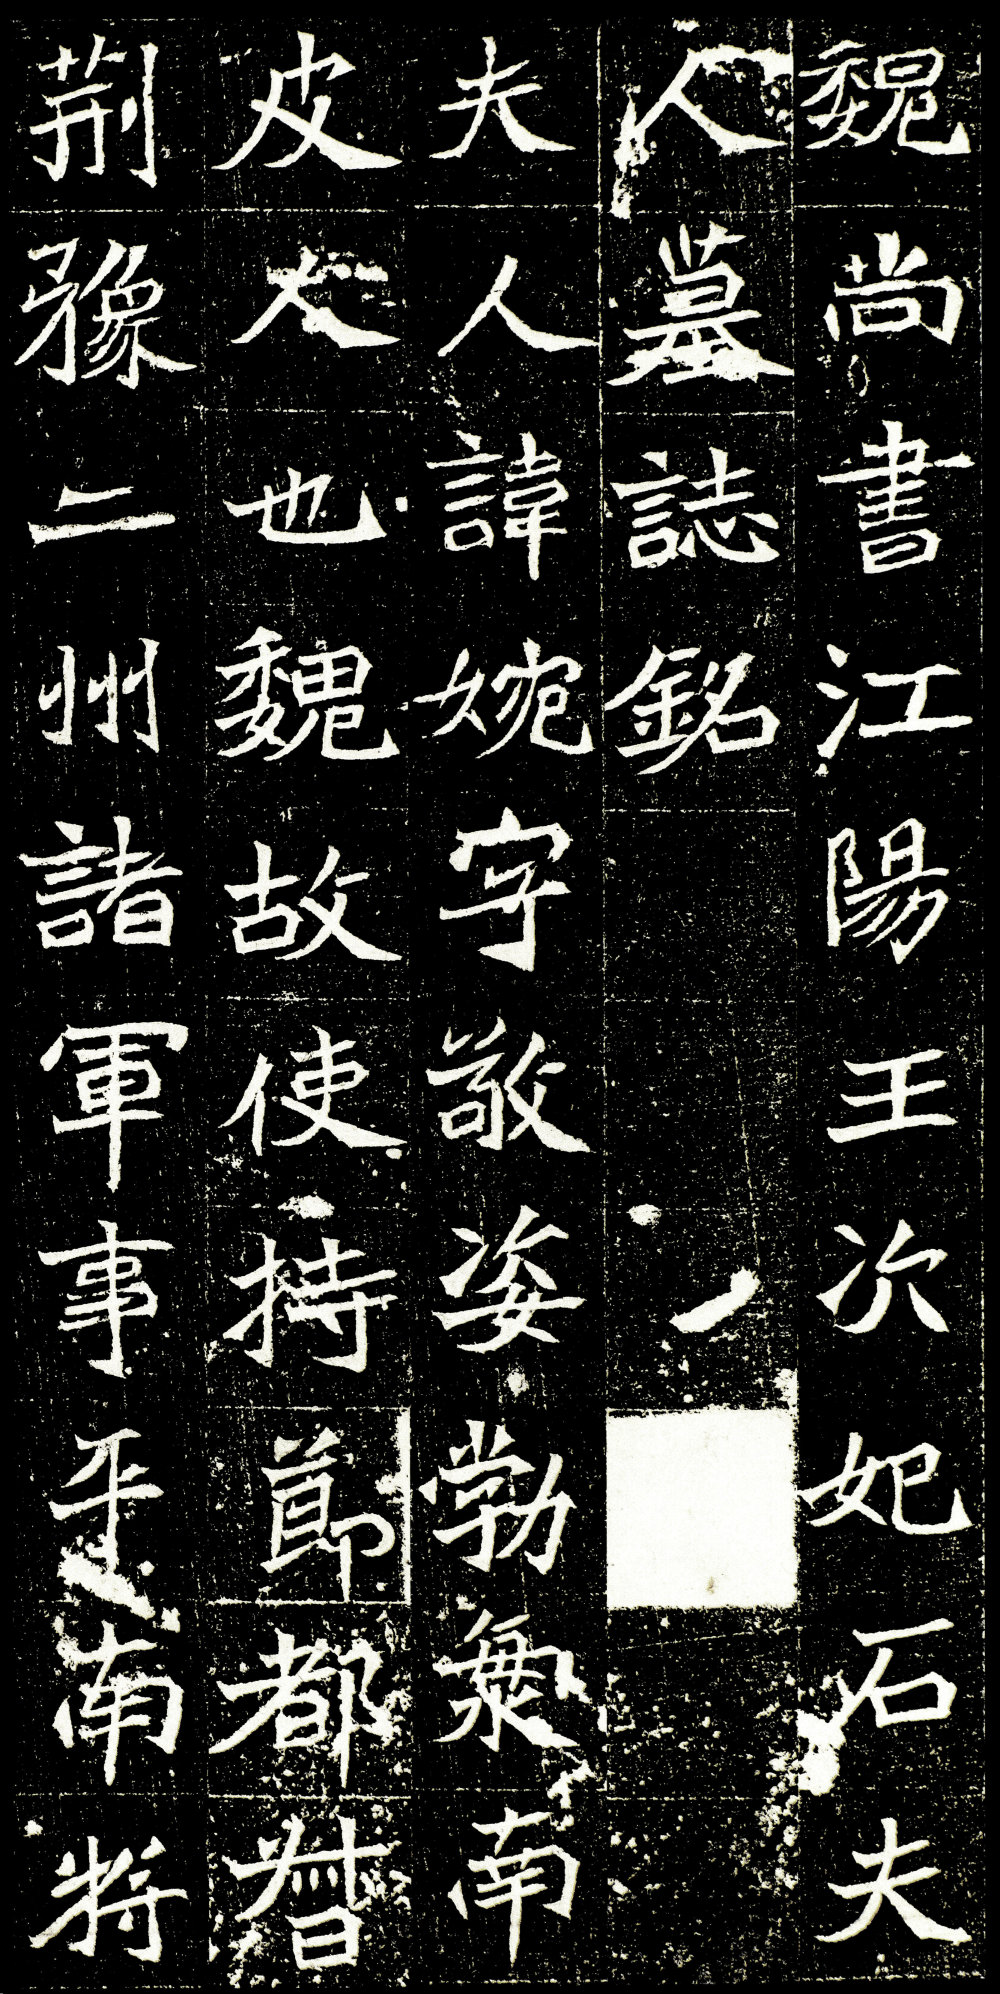 魏尚書江陽王次妃石夫
人墓誌銘
夫人諱婉字敬姿勃海南
皮人也魏故使持節都督
荊豫二州諸軍事平南將